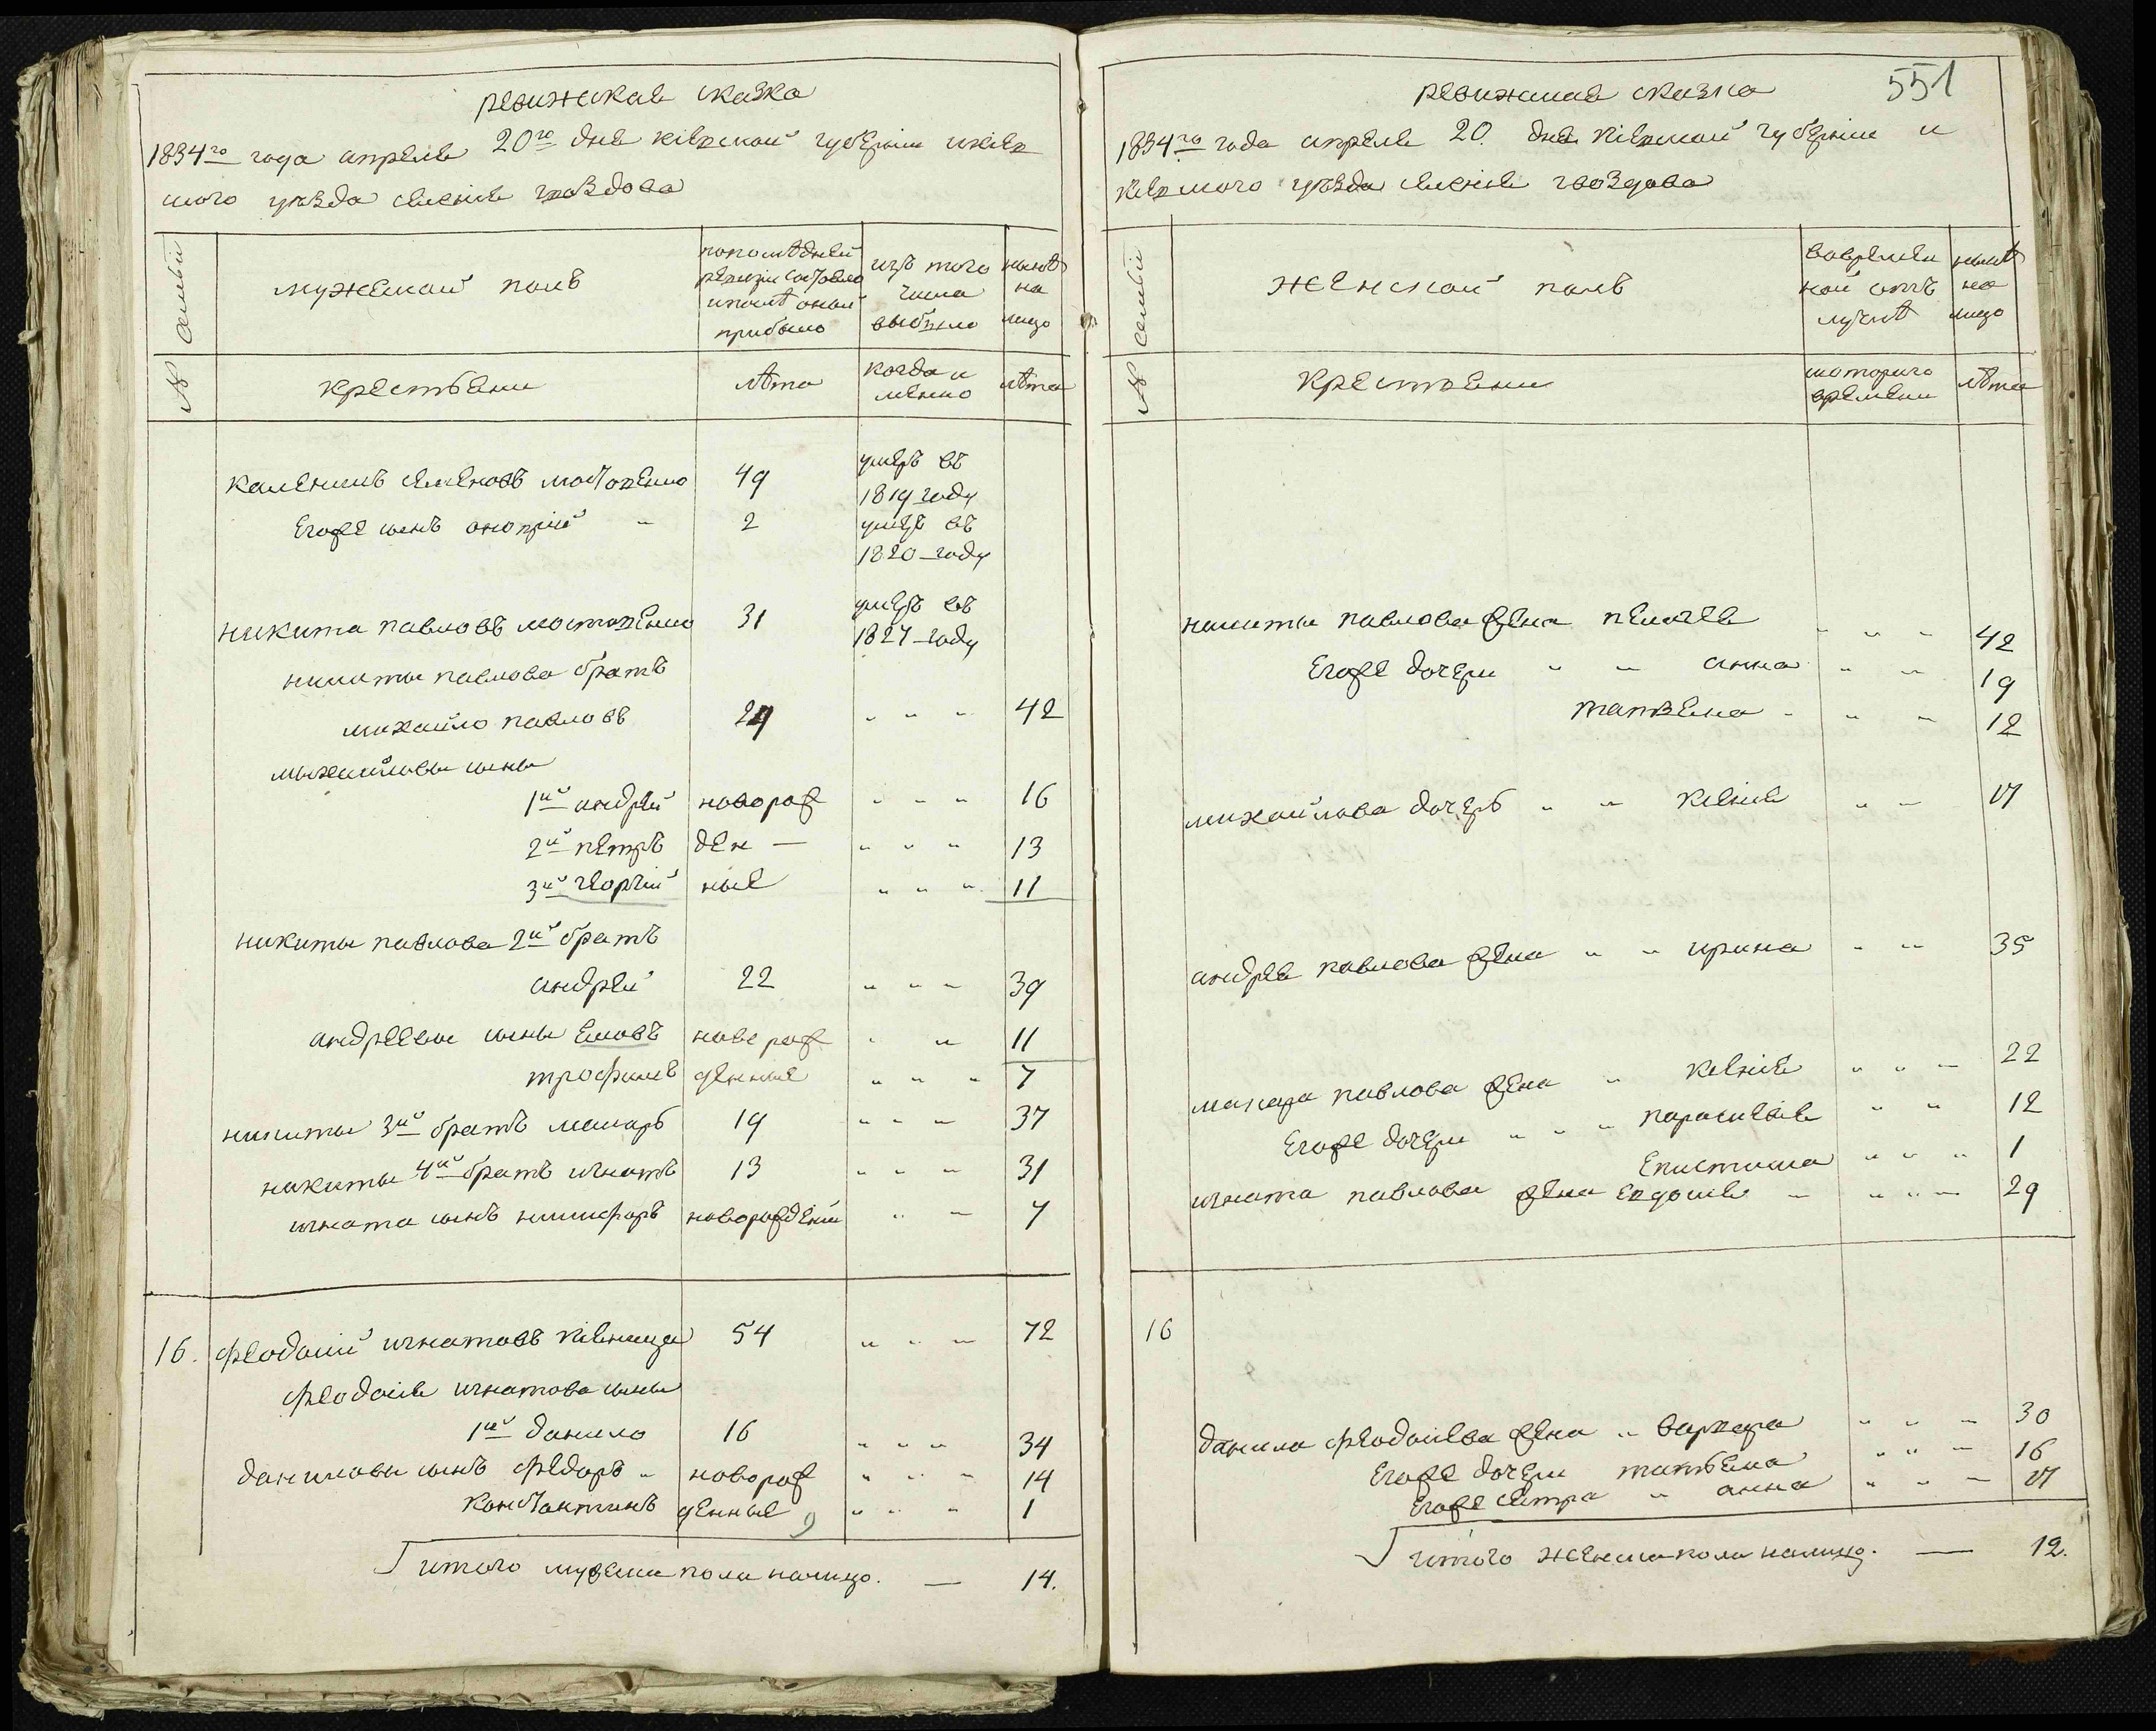 ревижская сказка
1834го года апреля 20го дня кіевской губерніи икіев
ского уезда селенія гвоздова
№ семьи
мужеской полъ
попоследней
ревизіи состояло
ипосле оной
прибыло
изъ того
числа
выбыло
ныне
на
лицо
крестьяни
лѣта
когда и
менно
лѣта
семеновъ 49 умеръ въ
1819 году
Егоже сынъ онопрій 2 умеръ въ
1820 году
никита павловъ 31 умеръ въ
1827 году
никиты павлова братъ
михайло павловъ 24 42
михайловы сыны
1й андрей новорож 16
2й петръ ден 13
3й георгій ные 11
никиты павлова 2й братъ
андрей 22 39
андреевы сыны новорож 11
трофимъ денные 7
никиты 3й братъ макаръ 19 37
никиты 4й братъ игнатъ 13 31
игната сынъ никифоръ новорожденій 7
16. феодосій игнатовъ 54 72
феодосія игнатова сыны
1й данило 16 34
даниловы сынъ федоръ новорож 14
константинъ денные 1
итого мужска пола налицо. 14.
551
ревижская сказка
1834го года апреля 20. дня кіевской губерніи и
кіевского уезда селенія гвоздова
№ семьи
женской полъ
вовремен
ной отъ
лучке
ныне
на
лицо
крестьяни
скоторого
времени
лѣта
никиты павлова жена пелагея 42
Егоже дочери анна 19
татяна 12
михайлова дочерь ксенія 17
андрея павлова жена ирина 35
макара павлова жена ксенія 22
Егоже дочери парасковія 12
Епистима 1
игната павлова жена Евдокія 29
16
данила феодосіева жена варвара 30
Егоже дочери татьяна 16
Егоже сестра анна 17
итого женска пола налицо. 12.